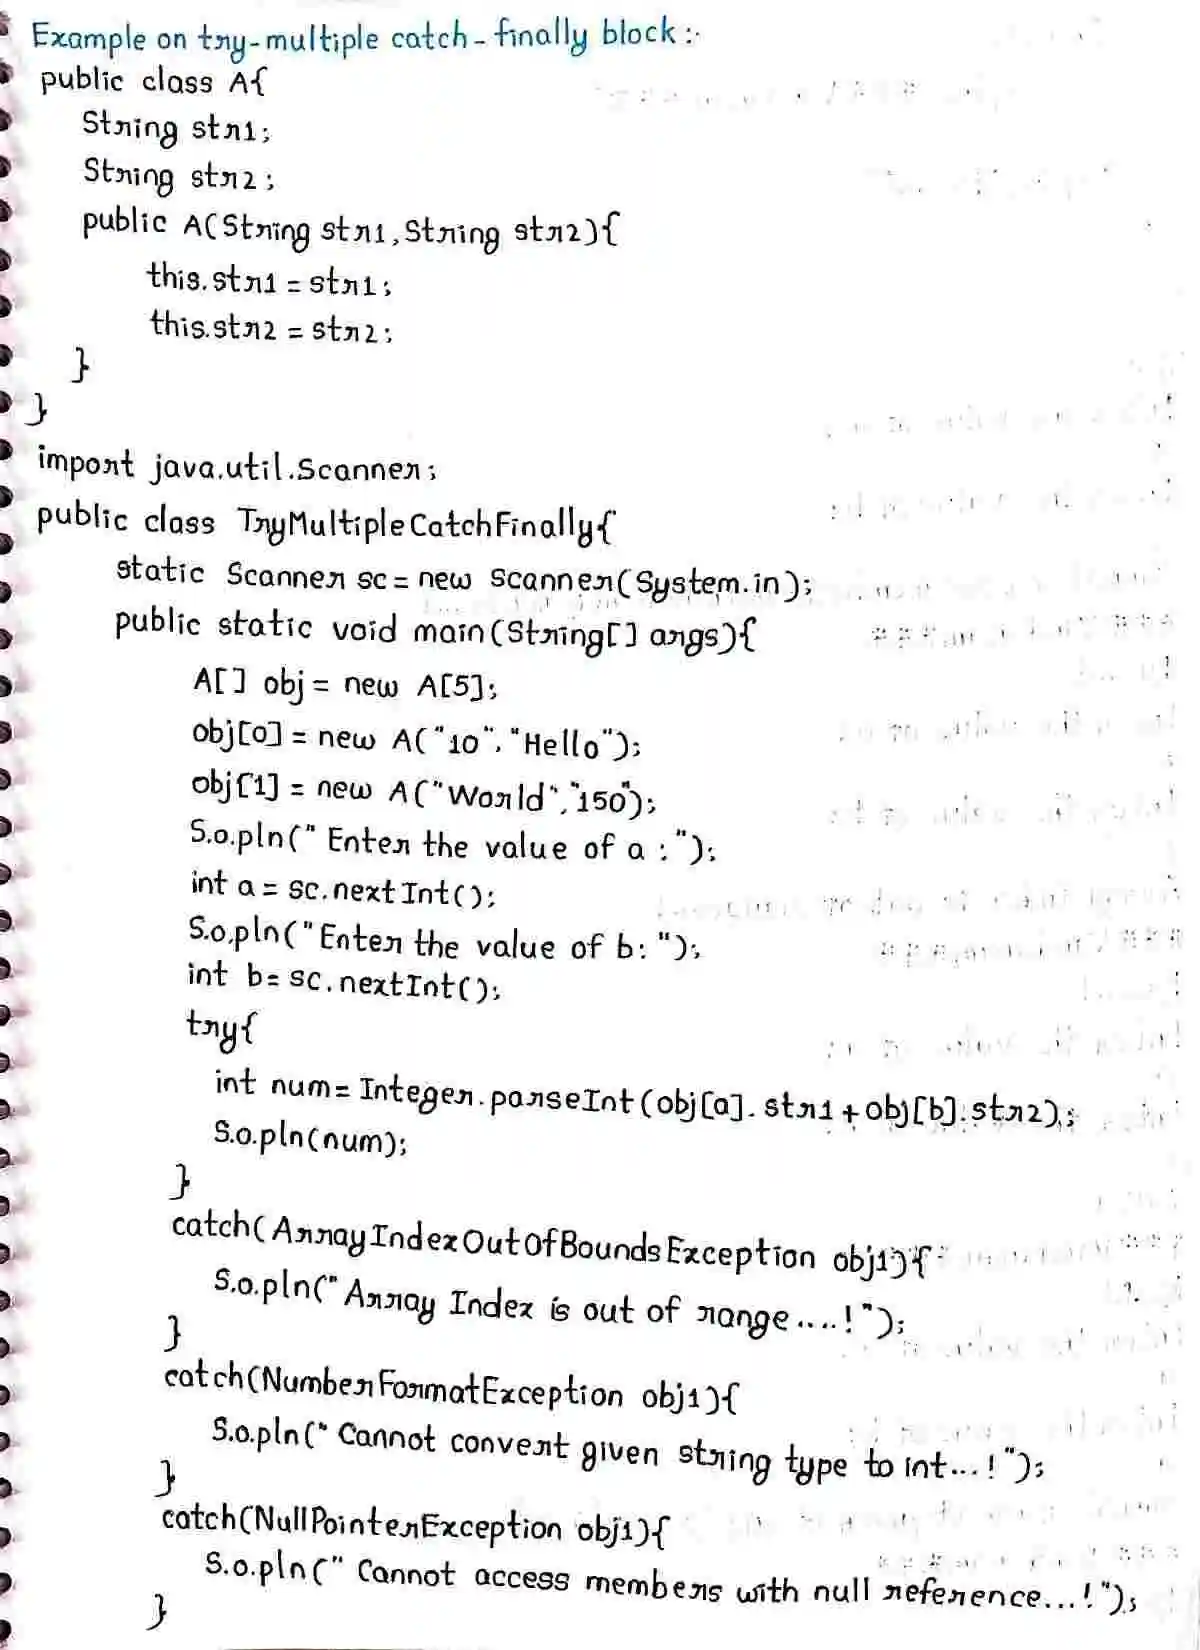 Example on try-multiple catch-finally block :-
public class A{
String str1;
String str2;
public A(String str1, String str2){
this.str1 = str1;
this.str2 = str2;
}
}
import java.util.Scanner;
public class TryMultipleCatchFinally{
static Scanner sc = new Scanner(System.in);
public static void main(String[] args){
A[] obj = new A[5];
obj[0] = new A("10", "Hello");
obj[1] = new A("World", "150");
S.o.pln(" Enter the value of a : ");
int a = sc.nextInt();
S.o.pln("Enter the value of b: ");
int b = sc.nextInt();
try{
int num = Integer.parseInt(obj[a].str1 + obj[b].str2);
S.o.pln(num);
}
catch(ArrayIndexOutOfBoundsException obj1){
S.o.pln(" Array Index is out of range....!");
}
catch(NumberFormatException obj1){
S.o.pln(" Cannot convert given string type to int...!");
}
catch(NullPointerException obj1){
S.o.pln(" Cannot access members with null reference...!");
}